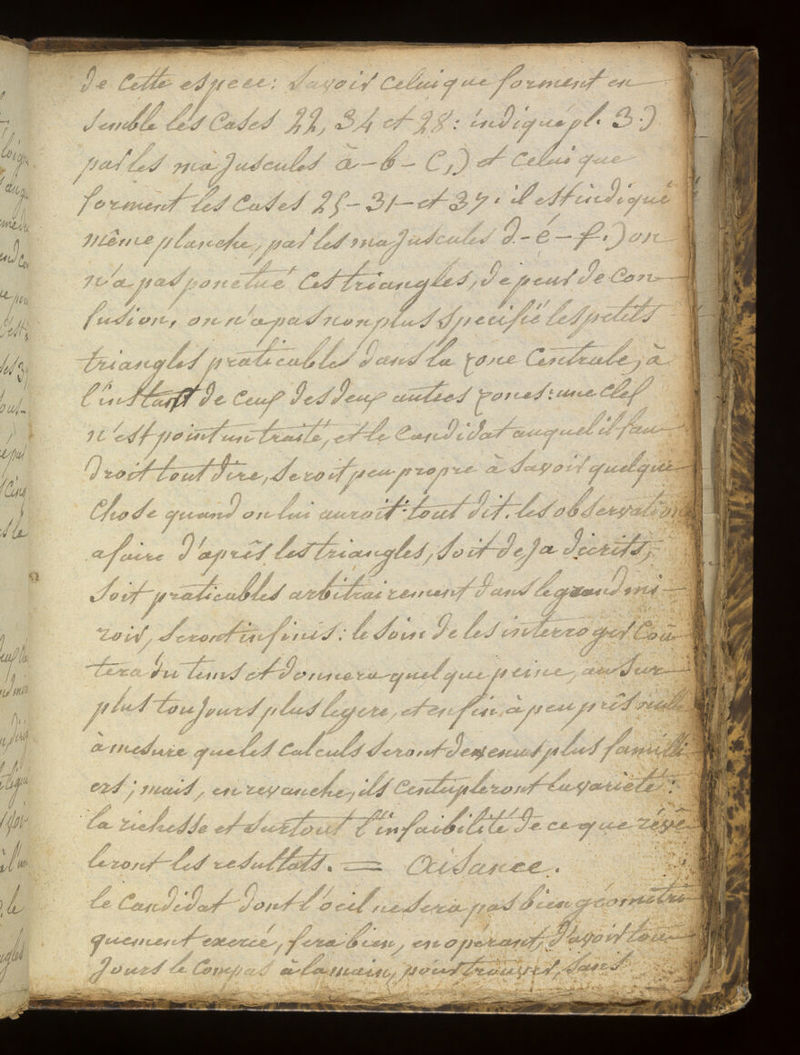 de cette espece: savoir celui que forment en
semble les cases 22, 34 et 28: indiqué pl. 3.)
par les majuscules a - b - c,) et celui que
forment les cases 25 - 31 - et 37: il est indiqué
même planche, par les majuscules d. - é - f.) on
n'a pas ponctué ces triangles, de peur de con-
fusion, on n'a pas non plus specifié les petits
triangles praticables dans la zone centrale, à
l'instart de ceux des deux autres zones: une clef
n'est point un traité, et le candidat auquel il fau-
droit tout dire, seroit peu propre à savoir quelque
chose quand on lui auroit tout dit. les observations
a faire d'après les triangles, soit deja décrits,
soit praticables arbitrairement dans le grand mi-
roir, seront infinis: le soin de les interroger cou-
tera du tems et donnera quelque peine, au sur-
plus toujours plus legere, et enfin, à peu près nulle
à mesure que les calculs seront devenus plus famili-
ers; mais, en revanche, ils centupleront la varieté:
la richesse et surtout l'infaibilité de ce que révè-
leront les resultats. = Aisance.
le candidat dont l'oeil ne sera pas bien géometri-
quement exercé, fera bien, en operant, d'avoir tou-
jours le compas à la main, pour trouver, sans